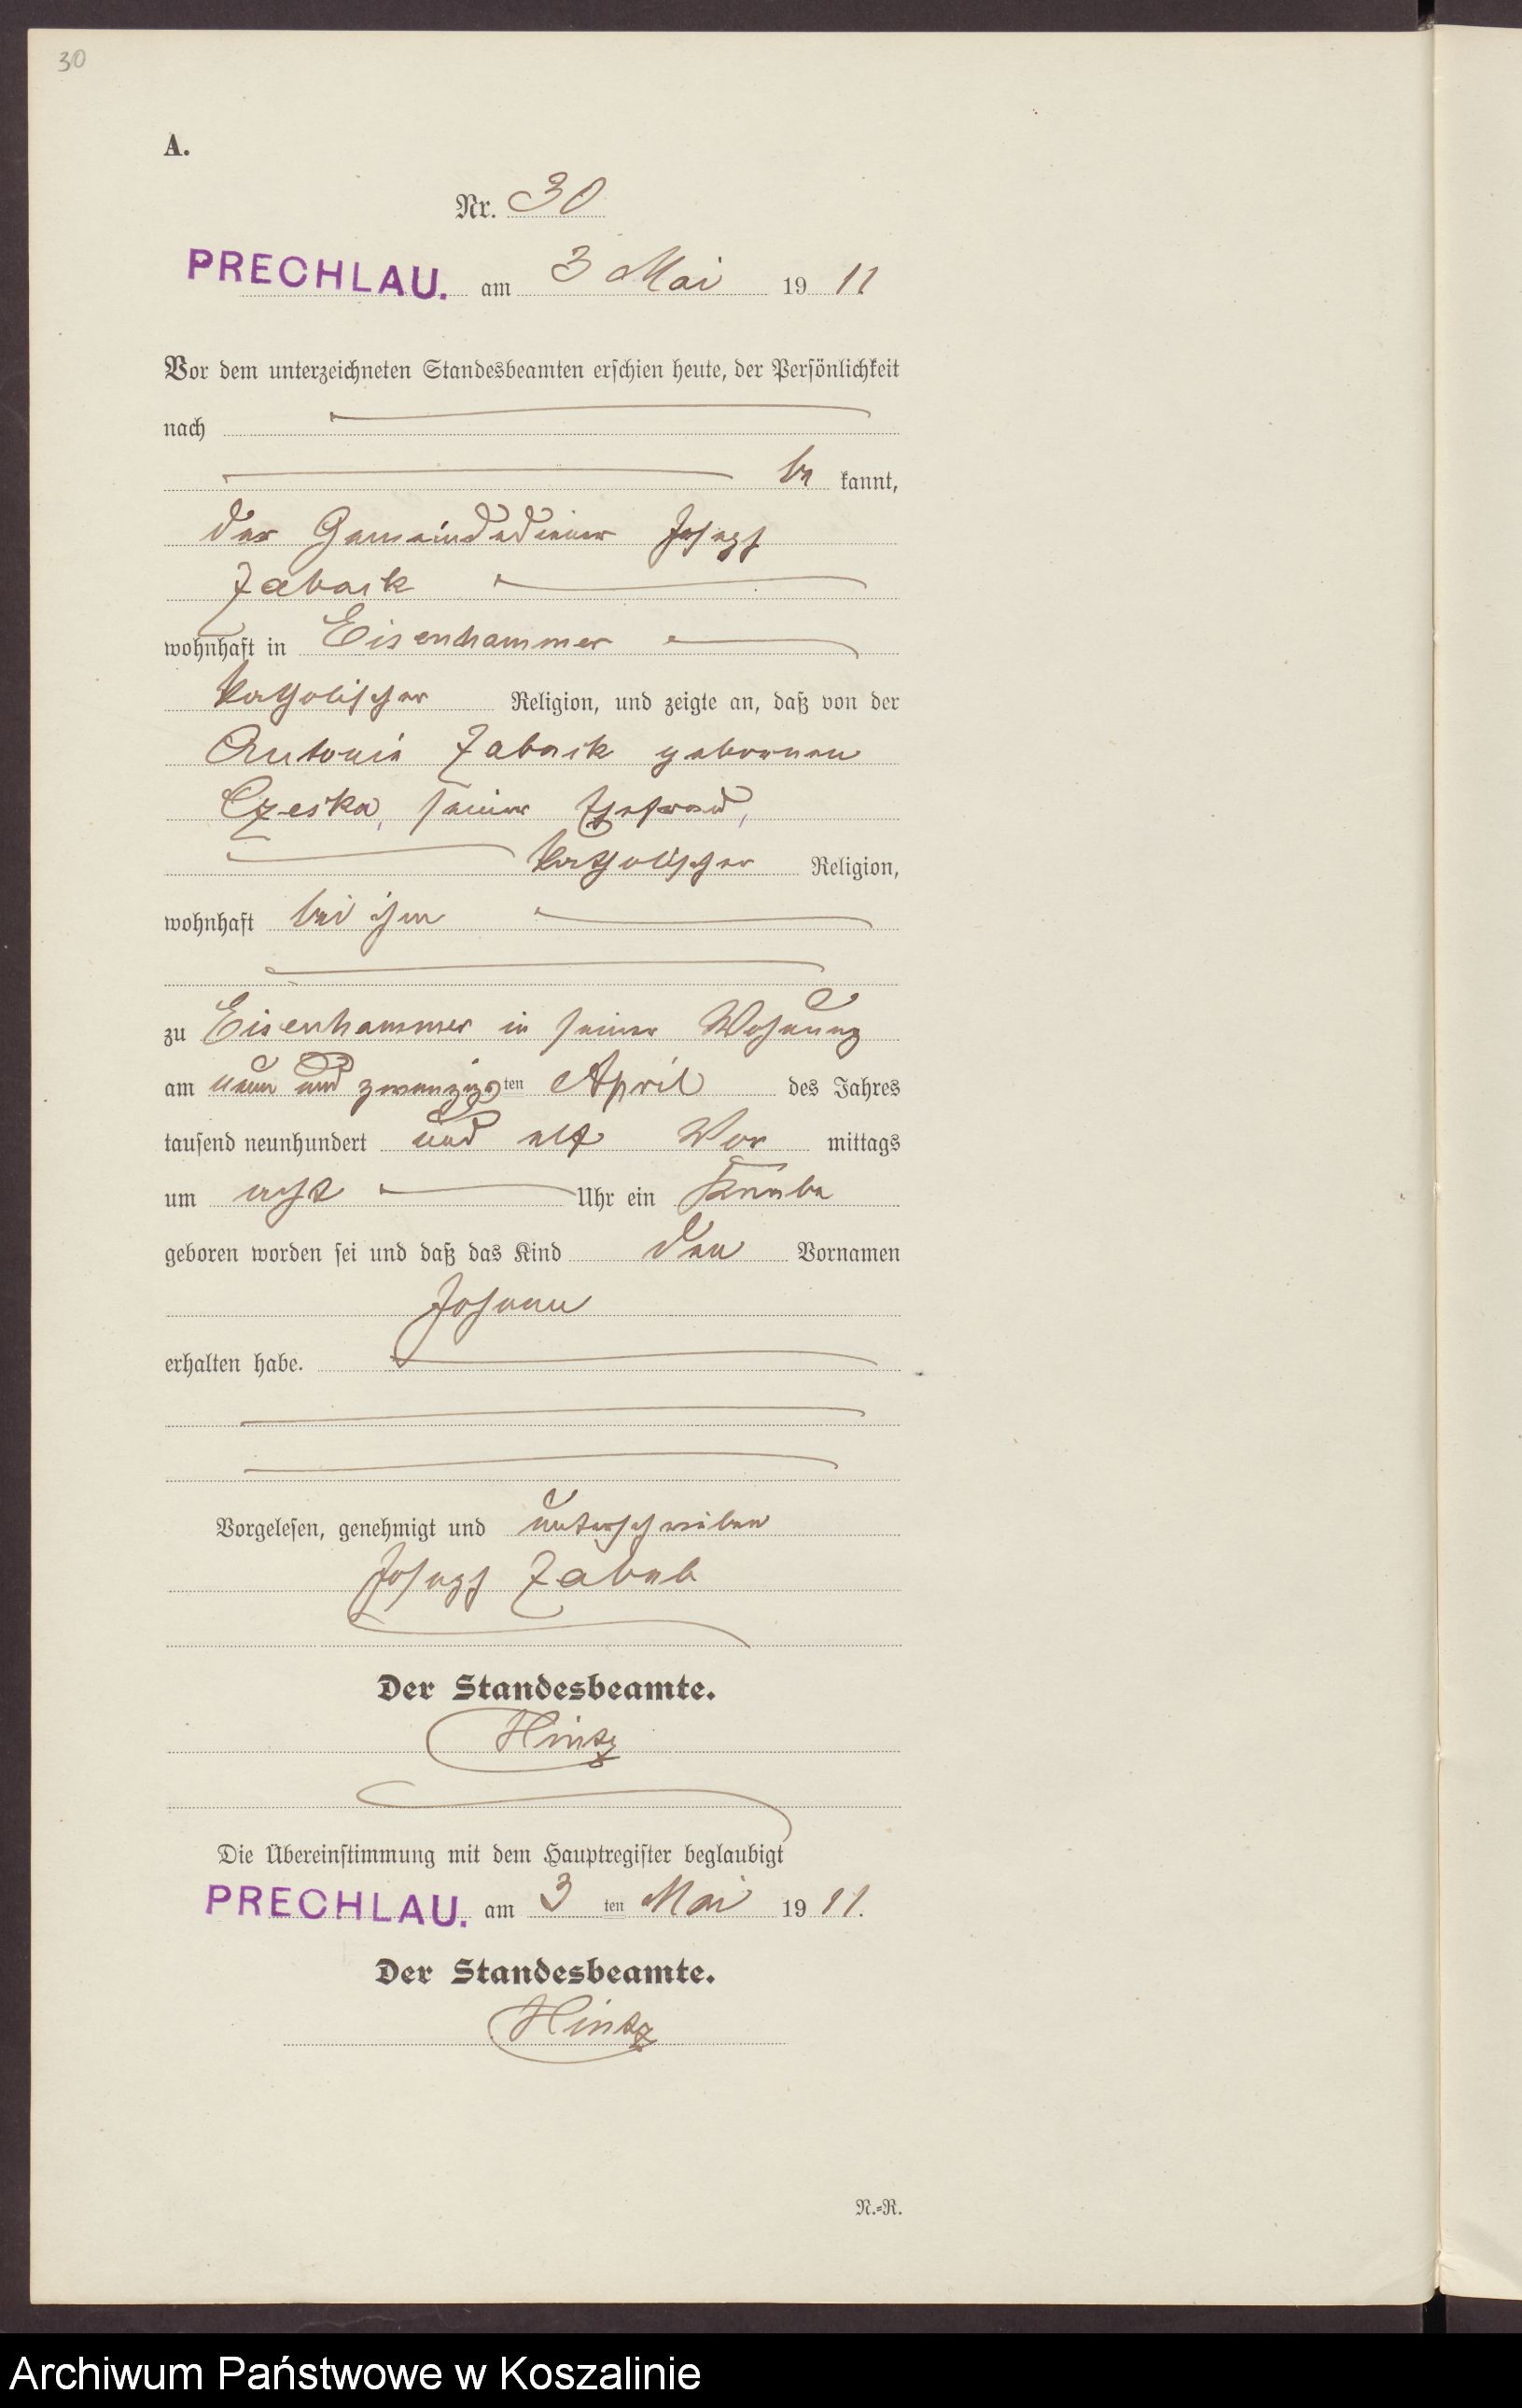 30
A.
Nr. 30
PRECHLAU. am 3 Mai 19 11
Vor dem unterzeichneten Standesbeamten erschien heute, der Persönlichkeit
nach
be kannt,
der Gemeindediener Joseph
Zabask
wohnhaft in Eisenhammer
katholischer Religion, und zeigte an, daß von der
Antonie Zabask geborenen
Czeska, seiner Ehefrau,
katholischer Religion,
wohnhaft bei ihm
zu Eisenhammer in seiner Wohnung
am neun und zwanzigsten April des Jahres
tausend neunhundert und elf Vor mittags
um acht Uhr ein Knabe
geboren worden sei und daß das Kind den Vornamen
Johann
erhalten habe.
Vorgelesen, genehmigt und unterschrieben
Joseph
Der Standesbeamte.
Hintz
Die Übereinstimmung mit dem Hauptregister beglaubigt
PRECHLAU. am 3 ten Mai 19 11.
Der Standesbeamte.
Hintz
N.=R.
Archiwum Państwowe w Koszalinie